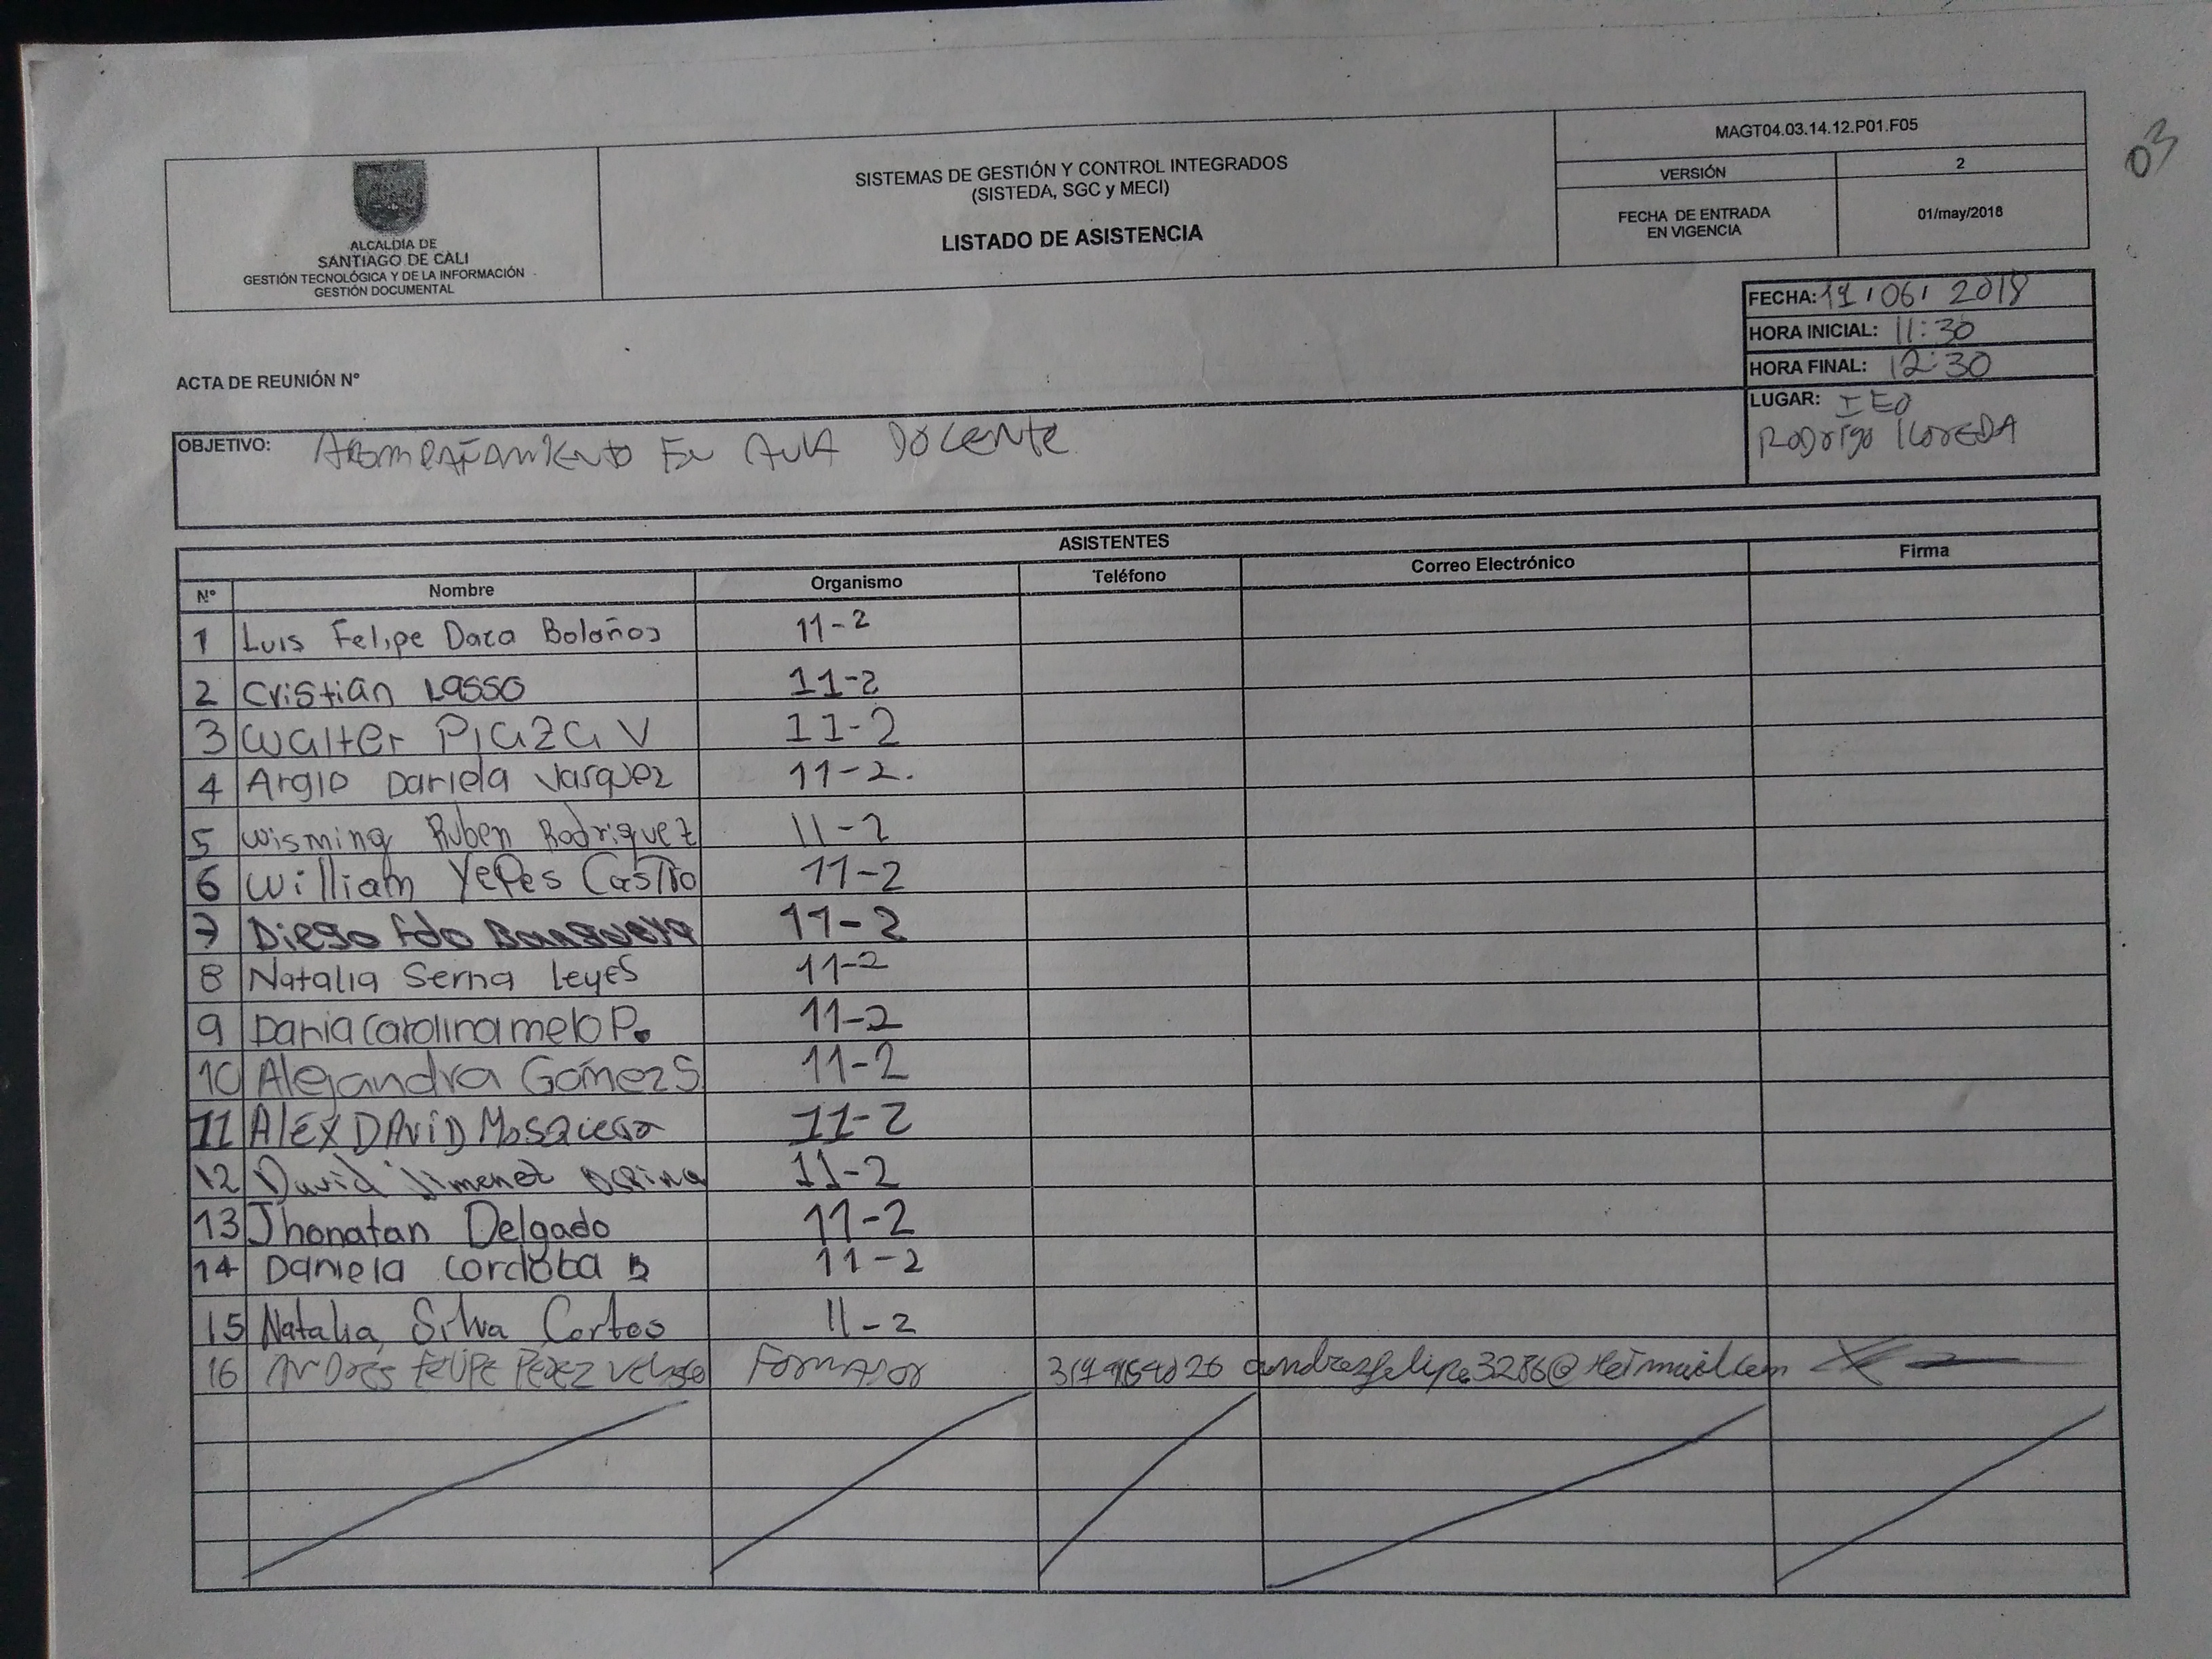 MAGT04.03.14.12.P01.F05
03
ALCALDÍA DE
SANTIAGO DE CALI
GESTIÓN TECNOLÓGICA Y DE LA INFORMACIÓN
GESTIÓN DOCUMENTAL
SISTEMAS DE GESTIÓN Y CONTROL INTEGRADOS
(SISTEDA, SGC y MECI)
LISTADO DE ASISTENCIA
VERSIÓN 2
FECHA DE ENTRADA
EN VIGENCIA
01/may/2018
FECHA: 2018
HORA INICIAL: 11:30
HORA FINAL: 12:30
ACTA DE REUNIÓN N°
LUGAR: IEO
Rodrigo lloreDA
OBJETIVO: Acompañamiento En Aula Docente
ASISTENTES
N° Nombre Organismo Teléfono Correo Electrónico Firma
1 Luis Felipe Daza Bolaños 11-2
2 Cristian Lasso 11-2
3 Walter Plaza V 11-2
4 Angie Daniela Vasquez 11-2.
5 Wisming Ruben Rodriguez 11-2
6 William Yepes Castro 11-2
7 Diego fdo 11-2
8 Natalia Serna Leyes 11-2
9 Dania Carolina melo P. 11-2
10 Alejandra Gómez S 11-2
11 AlEX DAViD Mosquera 11-2
12 David Jimenez Ospina 11-2
13 Jhonatan Delgado 11-2
14 Daniela Cordoba B 11-2
15 Natalia Silva Cortes 11-2
16 Andres Felipe Perez Formador andresfelipe3286@Hotmail.com